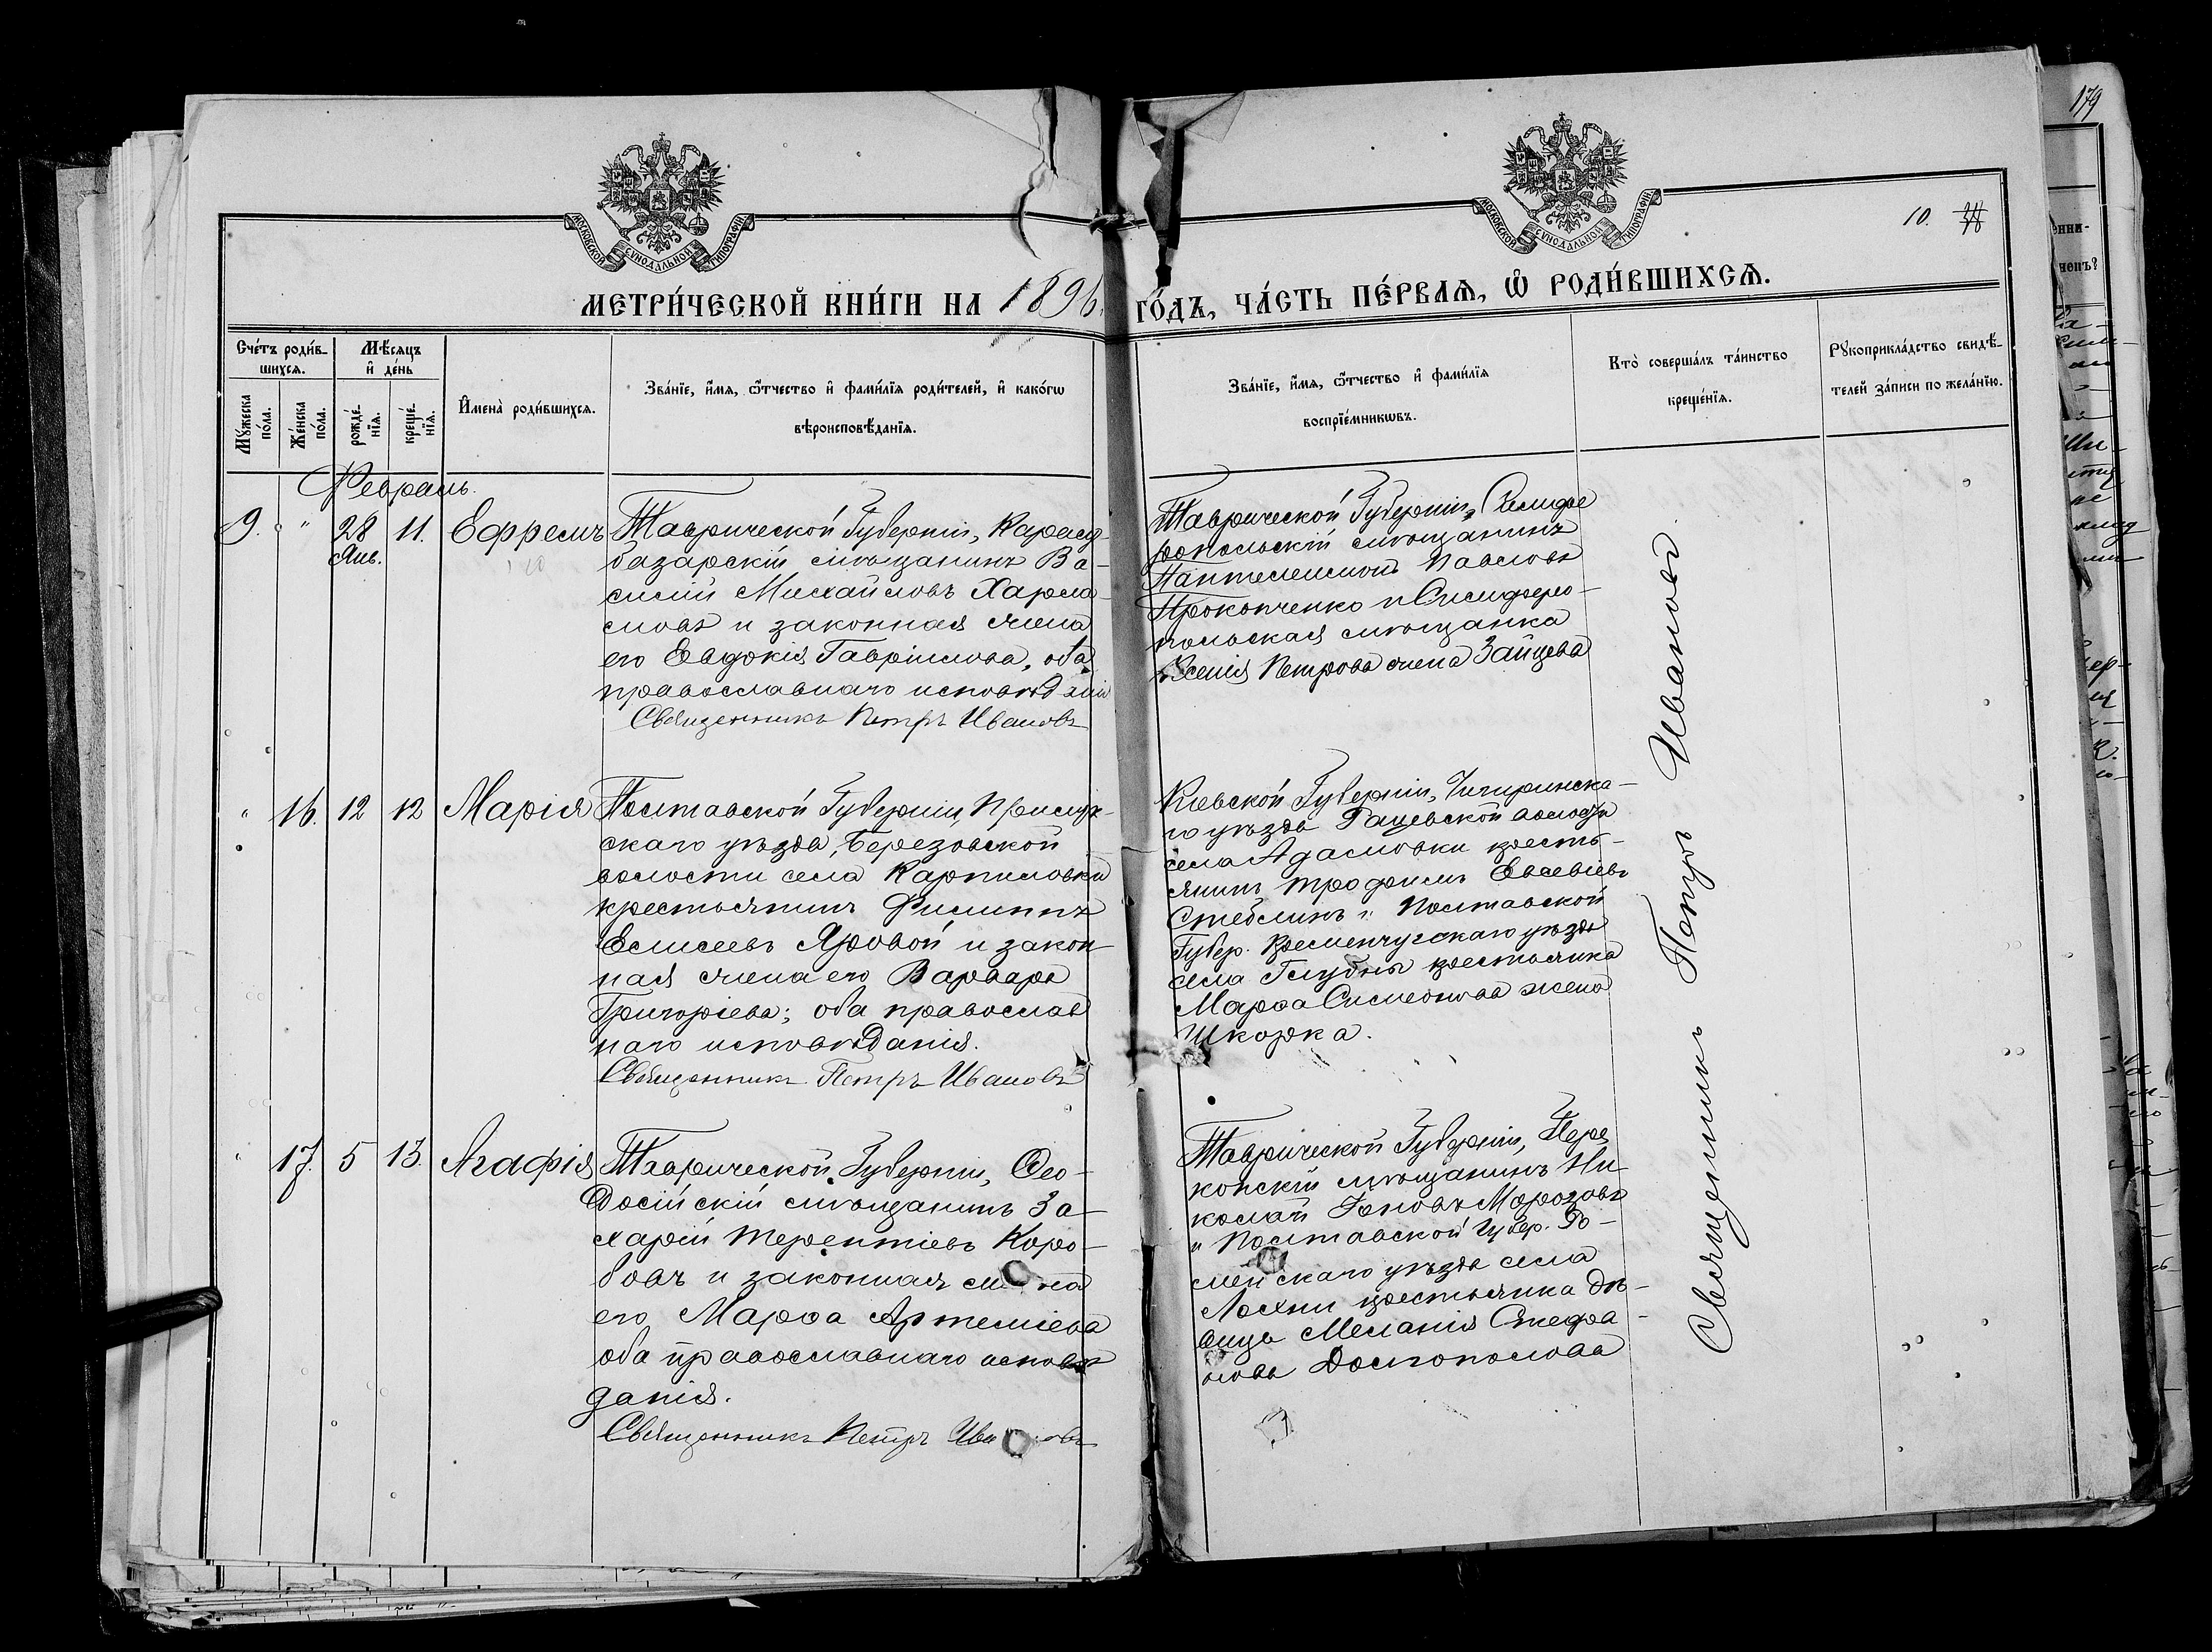 179
МОСКОВСКОЙ СѴНОДАЛЬНОЙ ТИПОГРАФІИ
МОСКОВСКОЙ СѴНОДАЛЬНОЙ ТИПОГРАФІИ
10.
МЕТРИ́ЧЕСКОЙ КНИ́ГИ НА 1896. ГО́ДЪ, ЧА́СТЬ ПЕ́РВАѦ, Ѽ РОДИ́ВШИХСѦ.
Сче́тъ роди́в-
шихсѧ.
Мꙋ́жеска по́ла.
Же́нска по́ла.
Мѣ́сѧцъ
и҆ де́нь
рожде́-
нїѧ.
креще́-
нїѧ.
И҆мена̀ роди́вшихсѧ.
Зва́нїе, и҆́мѧ, ѻ҆́тчество и҆ фами́лїѧ роди́телей, и҆ како́гѡ
вѣроисповѣ́данїѧ.
Зва́нїе, и҆́мѧ, ѻ҆́тчество и҆ фами́лїѧ
воспрїе́мникѡвъ.
Кто̀ соверша́лъ та́инство
креще́нїѧ.
Рꙋкоприкла́дство свидѣ́-
телей за́писи по жела́нїю.
Февраль.
9. " 28 11. Ефремъ
Янв.
Таврической Губерніи, Карасу-
базарскій мѣщанинъ Ва-
силій Михайловъ Харла-
мовъ и законная жена
его Евдокія Гавріилова, оба
православнаго исповѣданія
Священникъ Петръ Ивановъ
Таврической Губерніи, Симфе
ропольскій мѣщанинъ
Пантелеимонъ Павловъ
Прокопченко и Симферо-
польская мѣщанка
Ксенія Петрова жена Зайцева
" 16. 12 12 Марія
Полтавской Губерніи Прилук-
скаго уѣзда, Березовской
волости села Карпиловки
крестьянинъ Филиппъ
Елисеевъ Яровой и закон-
ная жена его Варвара
Григоріева; оба православ
наго исповѣданія.
Священникъ Петръ Ивановъ
Кіевской Губерніи, Чигиринска-
го уѣзда Рацевской волости
села Адамовки кресть-
янинъ Трофимъ Евсевіевъ
Стеблинъ и Полтавской
Губер. Кременчугскаго уѣзда
села Глубны крестьянка
Марѳа Симеонова жена
Шкорка.
" 17. 5 13. Агафія
Таврической Губерніи, Ѳео-
досійскій мѣщанинъ За-
харій Терентіевъ Коро-
бовъ и законная жена
его Марѳа Артеміева
оба православнаго исповѣ
данія.
Священникъ Петръ Ивановъ
Таврической Губерніи, Пере
копскій мѣщанинъ Ни-
колай Іоновъ Морозовъ
и Полтавской Губер. Ро-
менскаго уѣзда села
Лохни крестьянка дѣ-
вица Меланія Стефа-
нова Долгополова
Священникъ Петръ Ивановъ